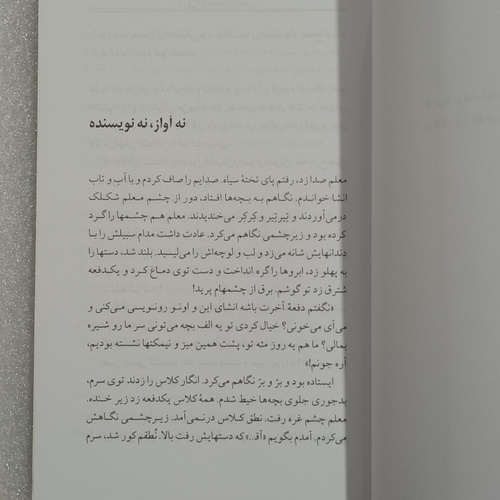 نه آواز، نه نویسنده
معلم صدا زد، رفتم پای تختهٔ سیاه. صدایم را صاف کردم و با آب و تاب
انشا خواندم. نگاهم به بچه‌ها افتاد، دور از چشم معلم شکلک
درمی‌آوردند و تِرتِر و کِرکِر می‌خندیدند. معلم هم چشمها را گرد
کرده بود و زیرچشمی نگاهم می‌کرد. عادت داشت مدام سبیلش را با
دندانهایش شانه می‌زد و لب و لوچه‌اش را می‌لیسید. بلند شد، دستها را
به پهلو زد، ابروها را گره انداخت و دست توی دماغ کرد و یکدفعه
شترق زد تو گوشم. برق از چشمهام پرید!
«نگفتم دفعهٔ آخرت باشه انشای این و اونو رونویسی می‌کنی و
می‌آی می‌خونی؟ خیال کردی تو یه الف بچه می‌تونی سر ما رو شیره
بمالی؟ ما هم یه روز مثه تو، پشت همین میز و نیمکتها نشسته بودیم،
آره جونم!»
ایستاده بود و بِرّ و بِرّ نگاهم می‌کرد. انگار کلاس را زدند توی سرم،
بدجوری جلوی بچه‌ها خیط شدم. همهٔ کلاس یکدفعه زد زیر خنده.
معلم چشم غره رفت. نطق کلاس درنمی‌آمد. زیرچشمی نگاهش
می‌کردم. آمدم بگویم «آقـ..» که دستهایش رفت بالا. نُطقم کور شد، سرم